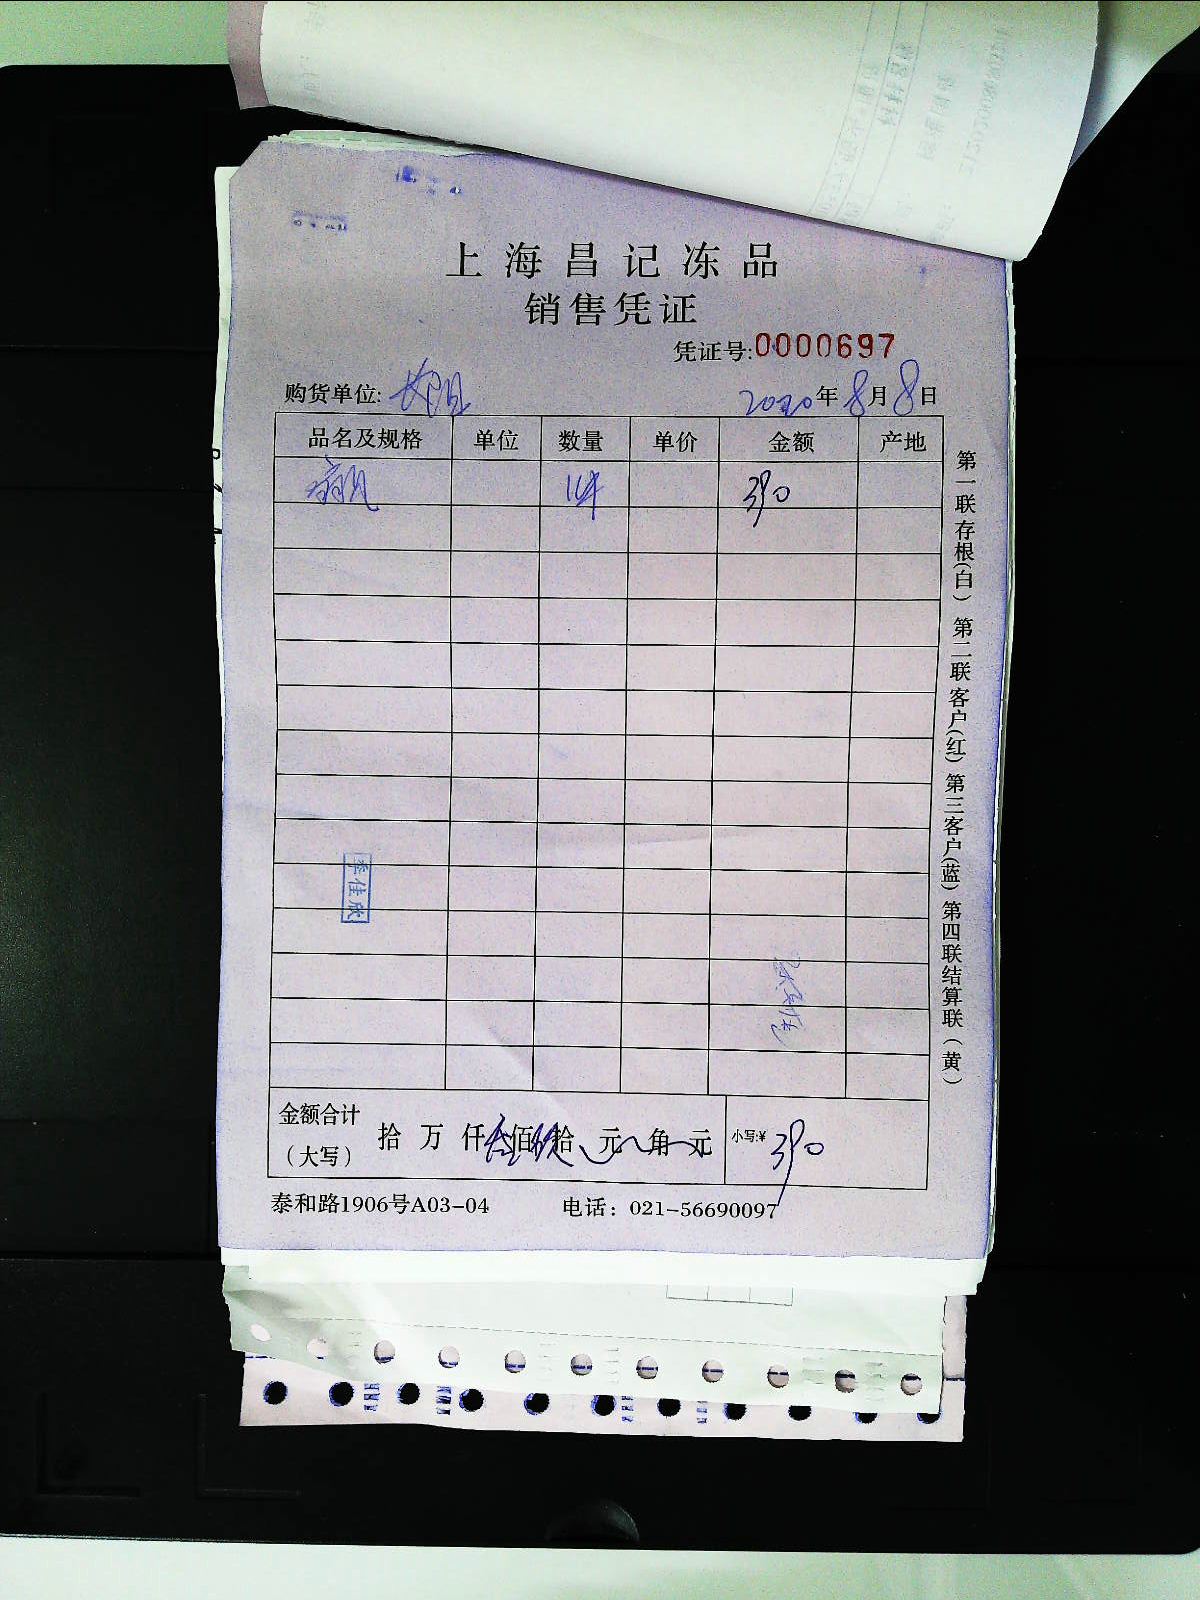 上海昌记冻品
销售凭证
凭证号:0000697
购货单位: 2020年8月8日
品名及规格 单位 数量 单价 金额 产地
1件 390
季佳欣
金额合计(大写) 拾 万 仟 佰 拾 元 角 元 小写:¥ 390
泰和路1906号A03-04 电话：021-56690097
第一联存根(白) 第二联客户(红) 第三客户(蓝) 第四联结算联(黄)